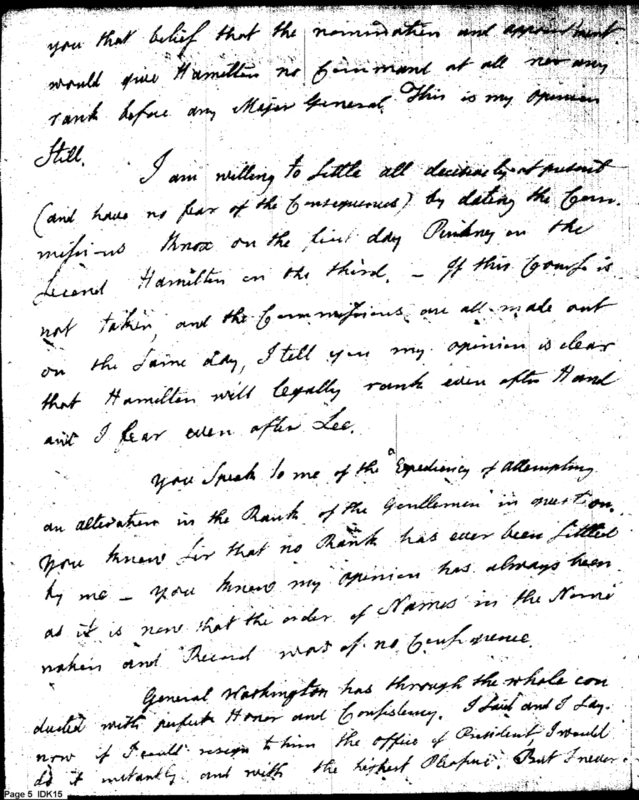 you that belief that the nomination and appointment
would give Hamilton no Command at all nor any
rank before any Major General. This is my opinion
Still.
I am willing to Settle all decisively at present
(and have no fear of the Consequences) by dating the Com-
missions Knox on the first day Pinkney on the
Second Hamilton on the third. – If this Course is
not taken, and the Commissions are all made out
on the Same day, I tell you my opinion is clear
that Hamilton will legally rank even after Hand
and I fear even after Lee.
You Speak to me of the "Expediency of attempting
an alteration in the Rank of the Gentlemen" in question.
You know Sir that no Rank has ever been Settled
by me – you know my opinion has always been
as it is now that the order of Names in the Nomi
nation and Record was of no Consequence.
General Washington has through the whole con
ducted with perfect Honor and Consistency. I Said and I Say
now if I could resign to him the office of President I would
do it instantly and with the highest Pleasure. But I never
Page 5 IDK15